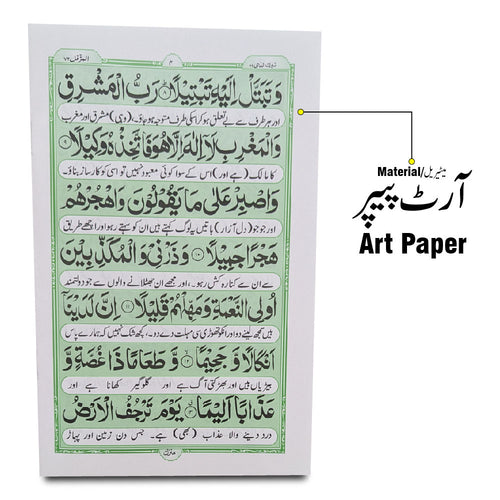 المزمل ۷۳
۴
تبارك الذي ۲۹
وَتَبَتَّلْ اِلَيْهِ تَبْتِيْلًا ۸ رَبُّ الْمَشْرِقِ
اور ہر طرف سے بے تعلق ہو کر اسی کی طرف متوجہ ہو جاؤ۔ (وہی) مشرق اور مغرب
وَالْمَغْرِبِ لَآ اِلٰهَ اِلَّا هُوَ فَاتَّخِذْهُ وَكِيْلًا ۹
کا مالک (ہے اور) اس کے سوا کوئی معبود نہیں تو اسی کو کارساز بناؤ۔
وَاصْبِرْ عَلٰى مَا يَقُوْلُوْنَ وَاهْجُرْهُمْ
اور جو جو (دل آزار) باتیں یہ لوگ کہتے ہیں ان کو سہتے رہو اور اچھے طریق
هَجْرًا جَمِيْلًا ۱۰ وَذَرْنِيْ وَالْمُكَذِّبِيْنَ
سے ان سے کنارہ کش رہو۔ اور مجھے ان جھٹلانے والوں سے جو دولتمند
اُولِي النَّعْمَةِ وَمَهِّلْهُمْ قَلِيْلًا ۱۱ اِنَّ لَدَيْنَآ
ہیں سمجھ لینے دو اور انکو تھوڑی سی مہلت دے دو۔ کچھ شک نہیں کہ ہمارے پاس
اَنْكَالًا وَّجَحِيْمًا ۱۲ وَّطَعَامًا ذَا غُصَّةٍ وَّ
بیڑیاں ہیں اور بھڑکتی آگ ہے اور گلوگیر کھانا ہے اور
عَذَابًا اَلِيْمًا ۱۳ يَوْمَ تَرْجُفُ الْاَرْضُ
درد دینے والا عذاب (بھی) ہے۔ جس دن زمین اور پہاڑ
منزل
Material/میٹیریل
آرٹ پیپر
Art Paper